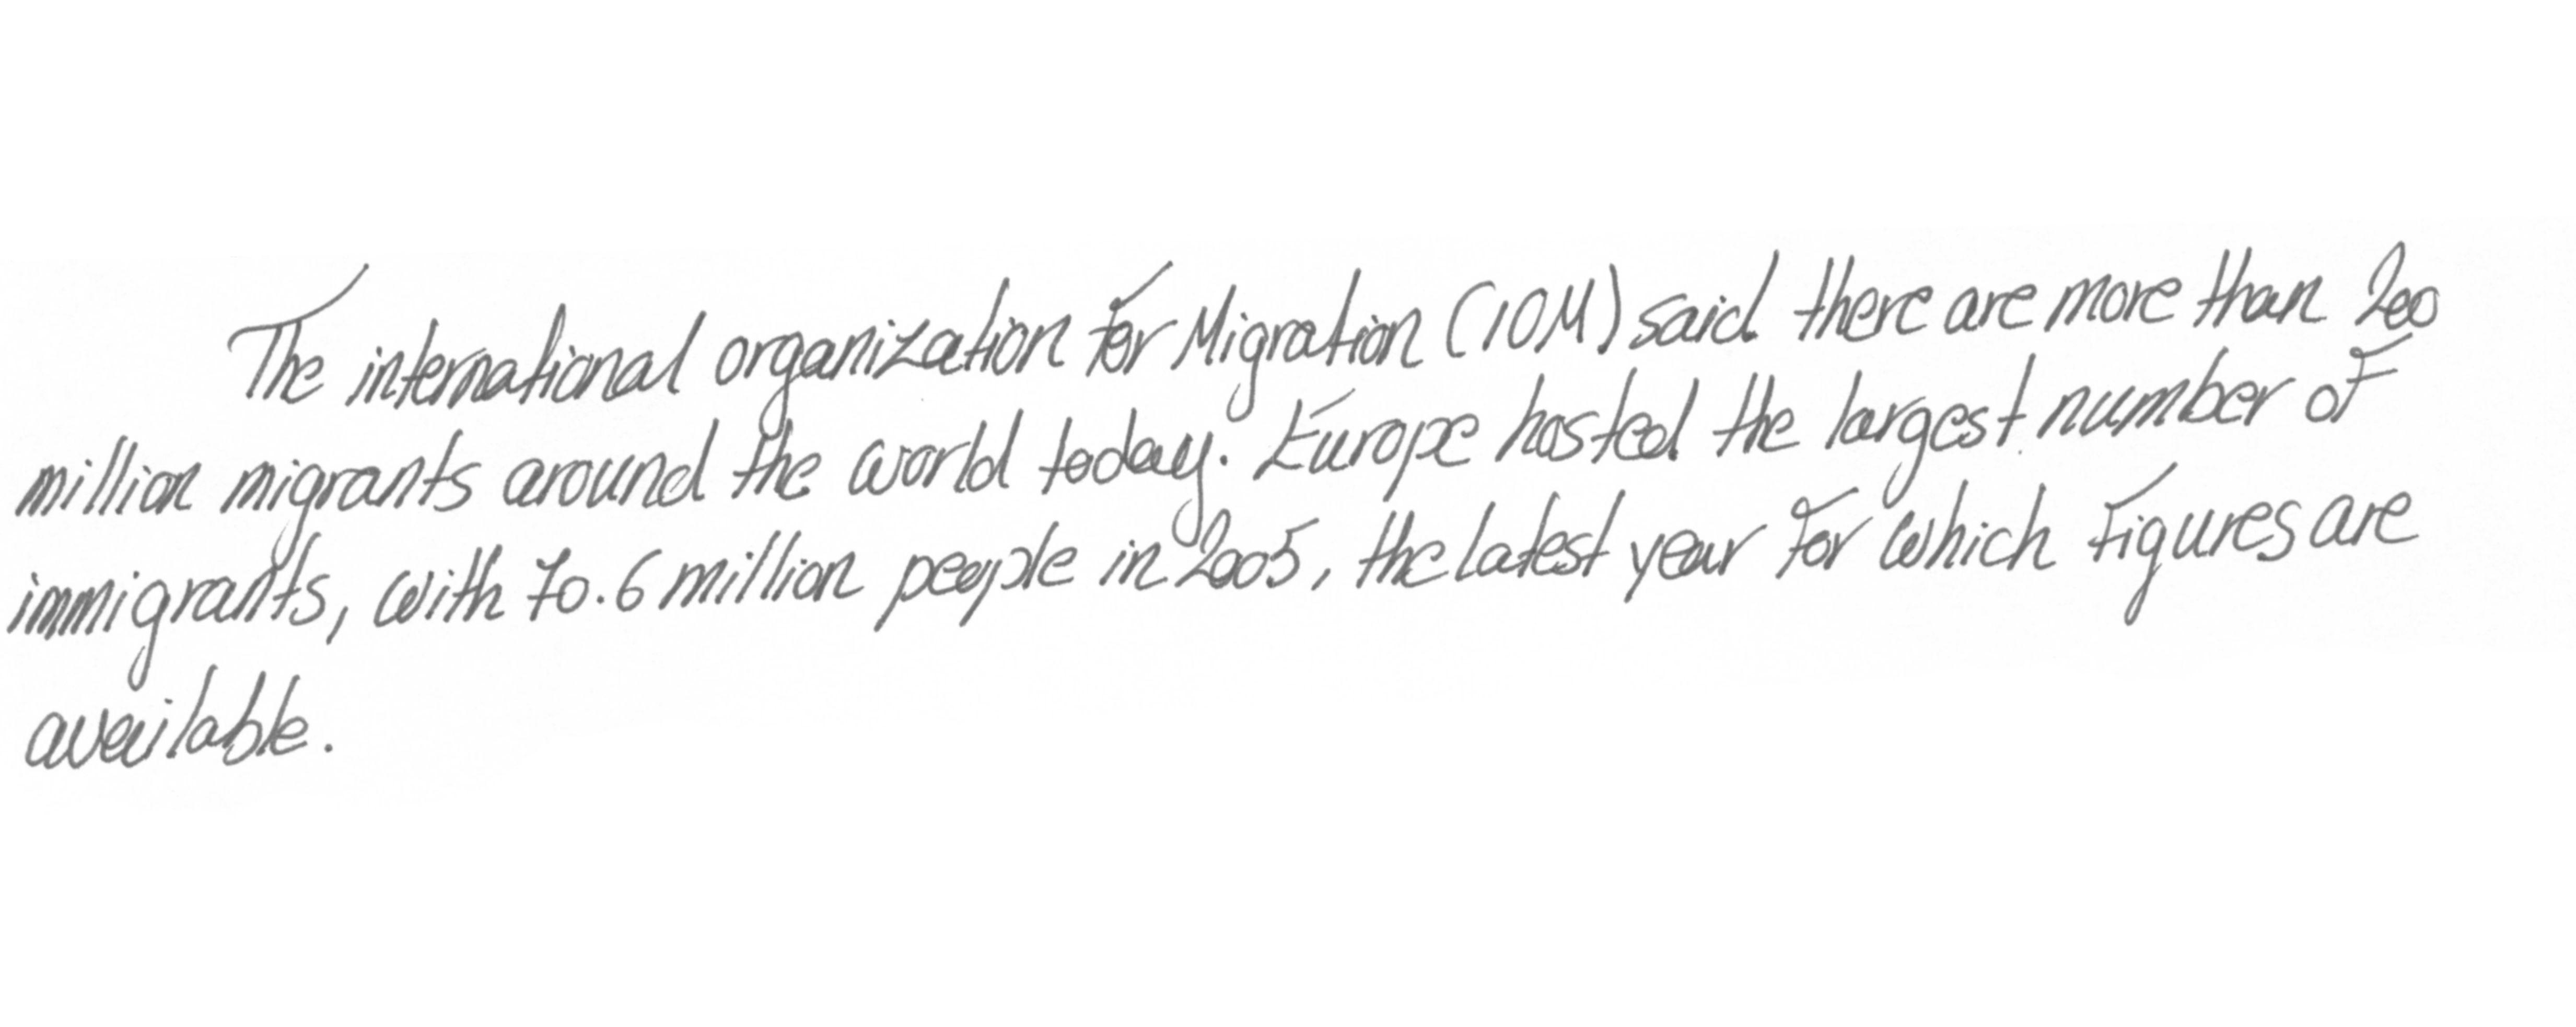 The international organization for Migration (IOM) said there are more than 200
million migrants around the world today. Europe hosted the largest number of
immigrants, with 70.6 million people in 2005, the latest year for which figures are
available.